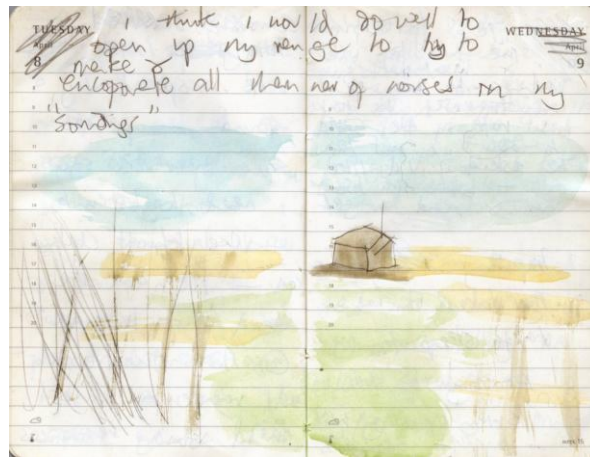 TUESDAY
April
8
WEDNESDAY
April
9
I think I would do well to
open up my range to try to
make &
encoporate all manner of noises in my
"Songs"